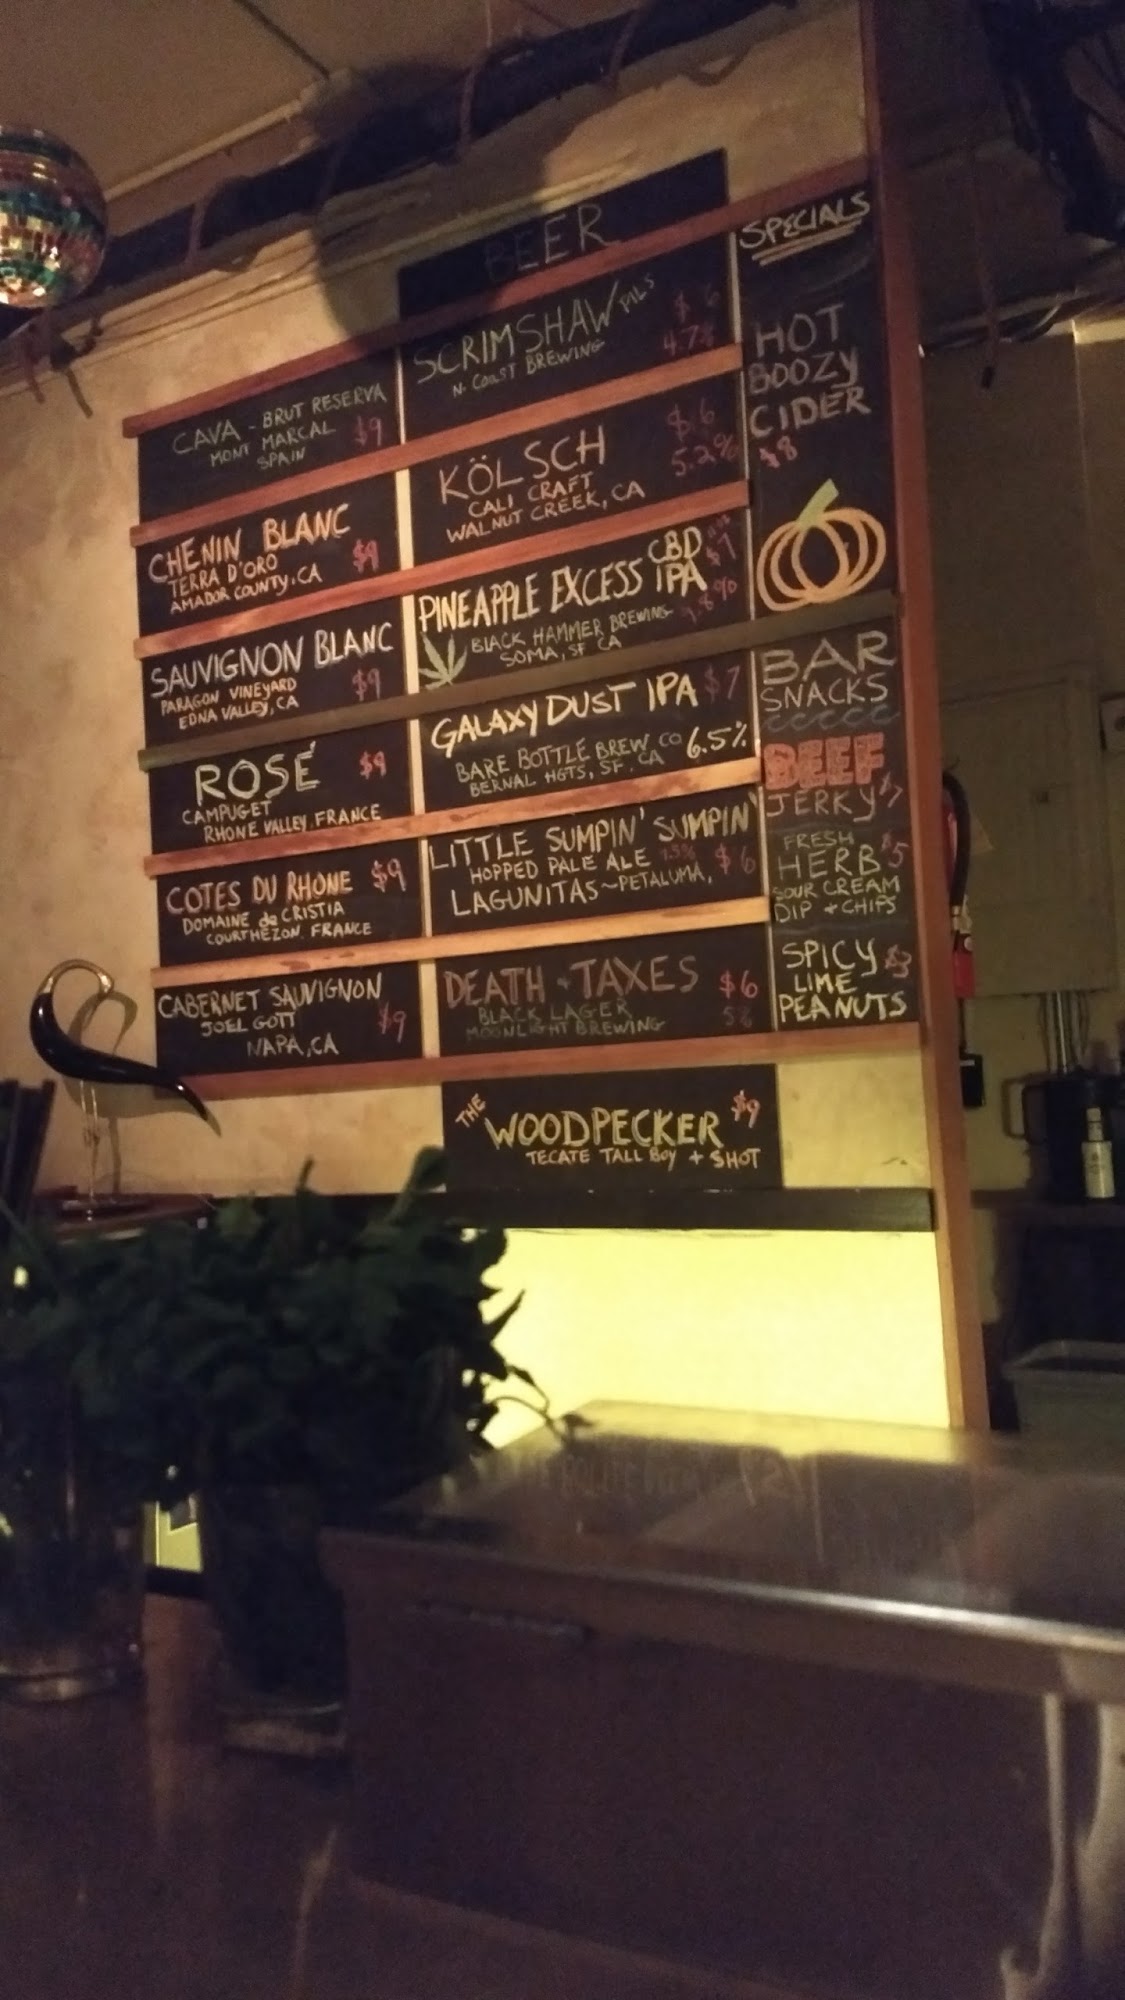 BEER
CAVA - BRUT RESERVA
MONT MARCAL $9
SPAIN
CHENIN BLANC
TERRA D'ORO $9
AMADOR COUNTY, CA
SAUVIGNON BLANC
PARAGON VINEYARD $9
EDNA VALLEY, CA
ROSÉ $9
CAMPUGET
RHONE VALLEY, FRANCE
COTES DU RHONE $9
DOMAINE de CRISTIA
COURTHÉZON, FRANCE
CABERNET SAUVIGNON
JOEL GOTT $9
NAPA, CA
SCRIMSHAW PILS $6
N. COAST BREWING 4.7%
KÖLSCH $6
CALI CRAFT 5.2%
WALNUT CREEK, CA
PINEAPPLE EXCESS CBD IPA $7
BLACK HAMMER BREWING
SOMA, SF CA
GALAXY DUST IPA $7
BARE BOTTLE BREW CO 6.5%
BERNAL HGTS, SF. CA
LITTLE SUMPIN' SUMPIN'
HOPPED PALE ALE 7.5% $6
LAGUNITAS~PETALUMA,
DEATH + TAXES $6
BLACK LAGER 5%
MOONLIGHT BREWING
THE WOODPECKER $9
TECATE TALL BOY + SHOT
SPECIALS
HOT
BOOZY
CIDER
$8
BAR
SNACKS
BEEF
JERKY $7
FRESH
HERB $5
SOUR CREAM
DIP + CHIPS
SPICY $3
LIME
PEANUTS